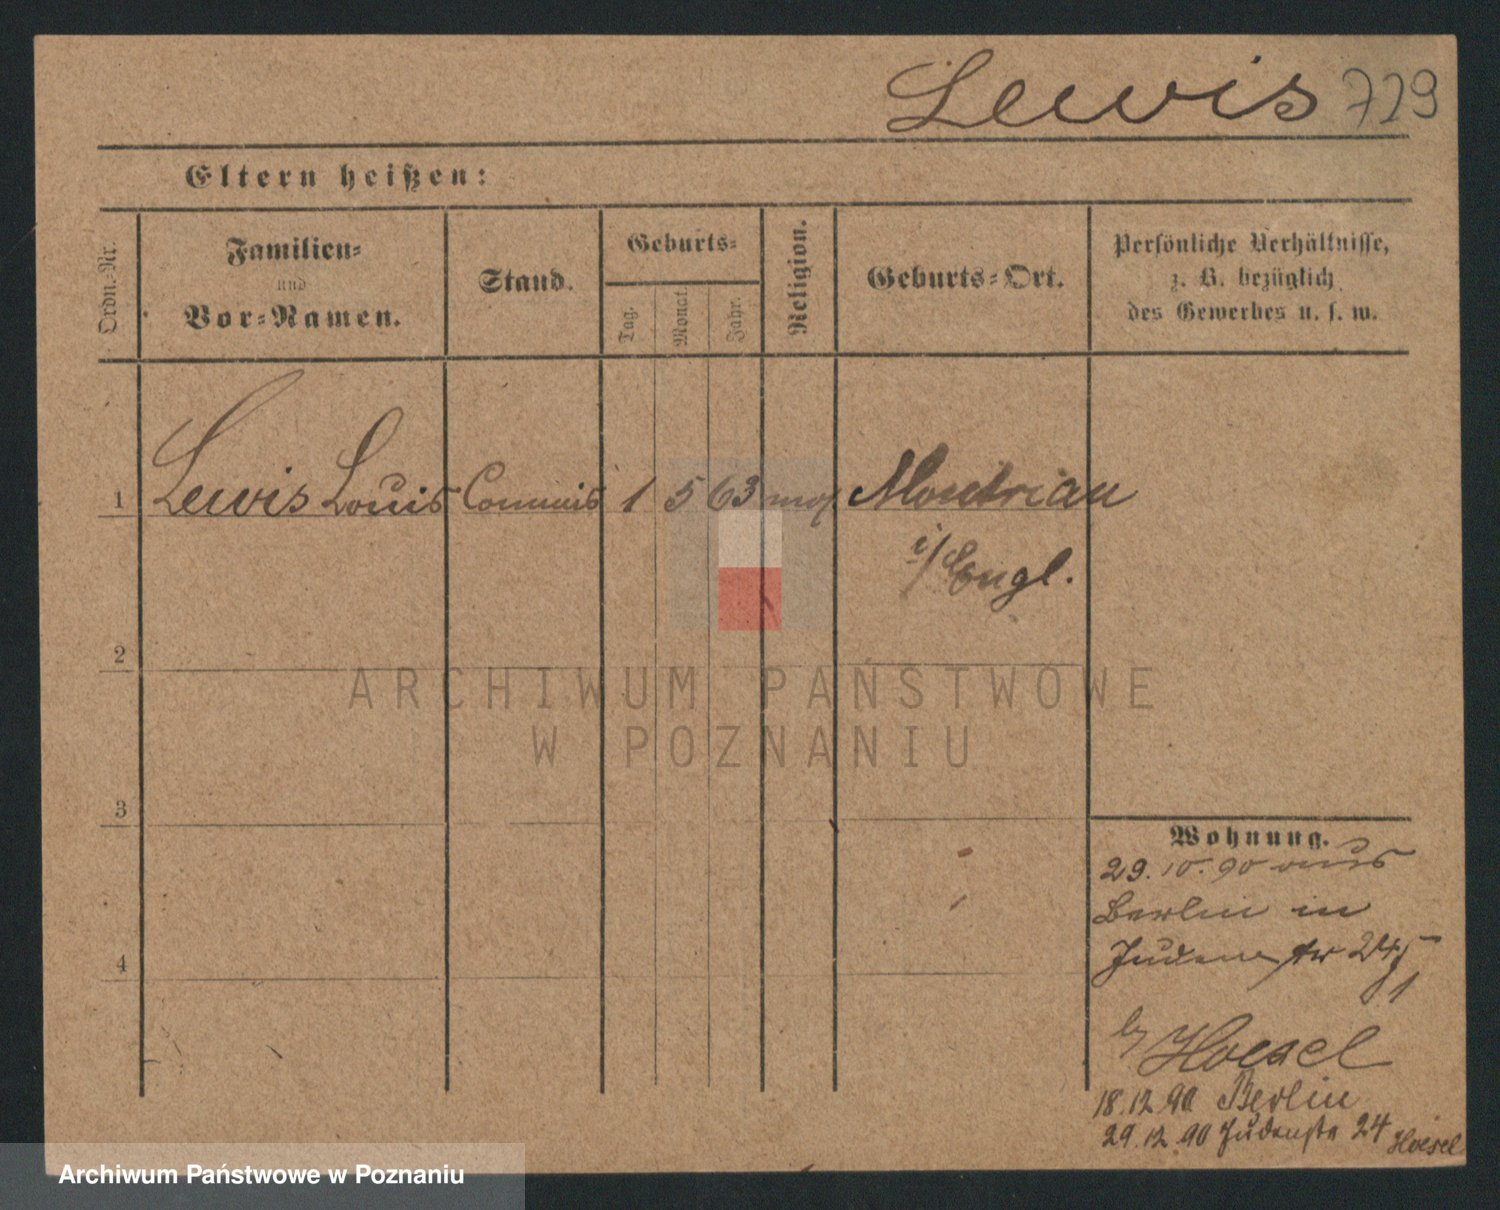 Lewis 729
Eltern heißen:
Ordn.-Nr.
Familien-
und
Vor-Namen.
Stand.
Geburts-
Tag.
Monat.
Jahr.
Religion.
Geburts-Ort.
Persönliche Verhältnisse,
z. B. bezüglich
des Gewerbes u. s. w.
1 Lewis Louis Commis 1 5 63 mos.
i/Engl.
2
ARCHIWUM PAŃSTWOWE
W POZNANIU
3
4
Wohnung.
29.10.90 aus
Berlin in
Judenstr 24
Hoesel
18.12.90 Berlin
29.12.90 Judenstr 24 Hoesel
Archiwum Państwowe w Poznaniu